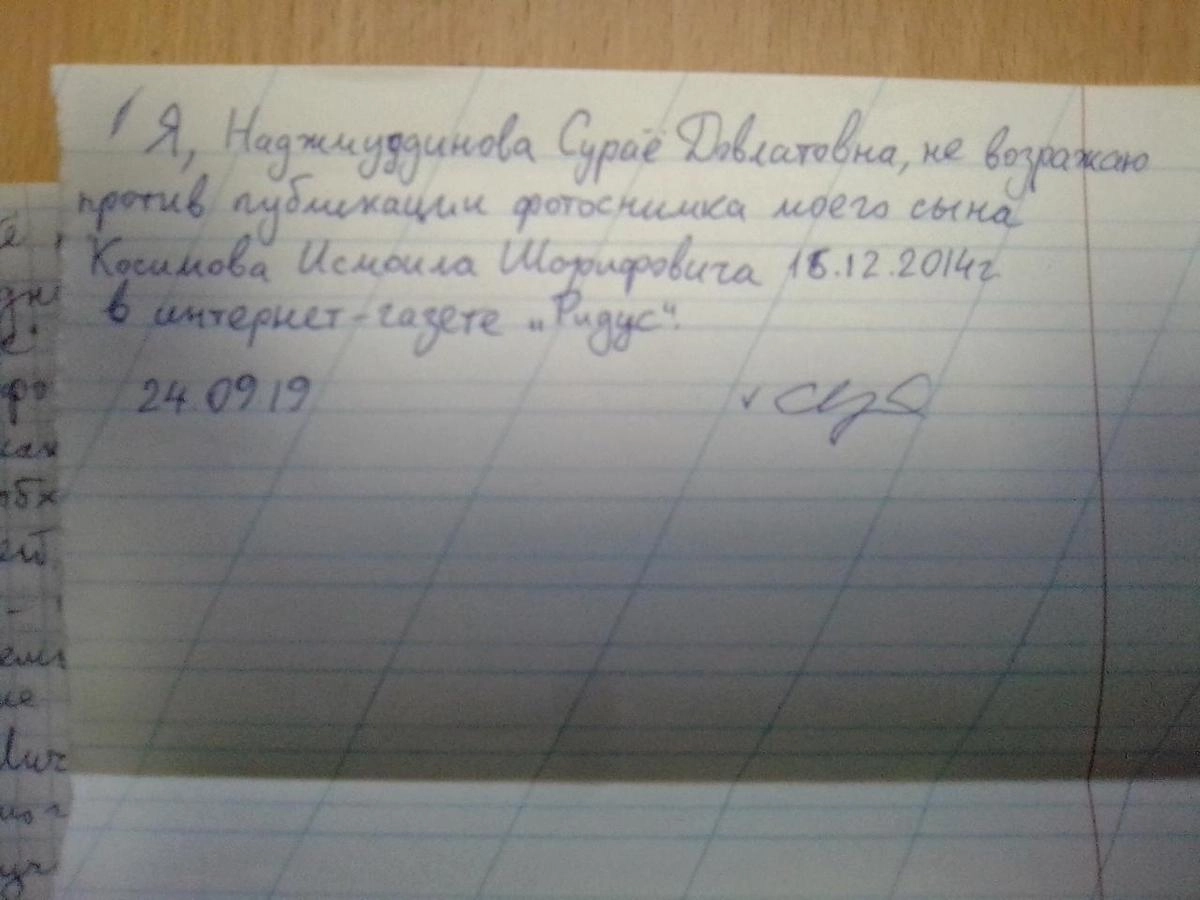 Я, Наджмуддинова Сураё Довлатовна, не возражаю
против публикации фотоснимка моего сына
Косимова Исмоила Шорифовича 16.12.2014г
в интернет-газете „Ридус“.
24.09.19